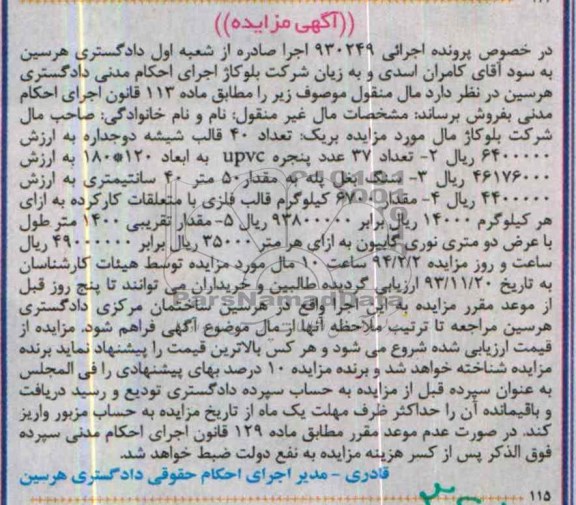 ((آگهی مزایده))
در خصوص پرونده اجرائی ۹۳۰۲۴۹ اجرا صادره از شعبه اول دادگستری هرسین
به سود آقای کامران اسدی و به زیان شرکت بلوکاژ اجرای احکام مدنی دادگستری
هرسین در نظر دارد مال منقول موصوف زیر را مطابق ماده ۱۱۳ قانون اجرای احکام
مدنی بفروش برساند: مشخصات مال غیر منقول: نام و نام خانوادگی: صاحب مال
شرکت بلوکاژ مال مورد مزایده بریک: تعداد ۴۰ قالب شیشه دوجداره به ارزش
۶۴۰۰۰۰۰ ریال ۲- تعداد ۳۷ عدد پنجره upvc به ابعاد ۱۲۰*۱۸۰ به ارزش
۴۶۱۷۶۰۰۰ ریال ۳- سنگ بغل پله به مقدار ۵۰ متر ۴۰ سانتیمتری به ارزش
۴۴۰۰۰۰۰ ریال ۴- مقدار ۶۷۰۰ کیلوگرم قالب فلزی با متعلقات کارکرده به ازای
هر کیلوگرم ۱۴۰۰۰ ریال برابر ۹۳۸۰۰۰۰۰ ریال ۵- مقدار تقریبی ۱۴۰۰ متر طول
با عرض دو متری توری گابیون به ازای هر متر ۳۵۰۰۰ ریال برابر ۴۹۰۰۰۰۰۰ ریال
ساعت و روز مزایده ۹۴/۲/۲ ساعت ۱۰ مال مورد مزایده توسط هیئات کارشناسان
به تاریخ ۹۳/۱۱/۲۰ ارزیابی گردیده طالبین و خریداران می توانند تا پنج روز قبل
از موعد مقرر مزایده به این اجرا واقع در هرسین ساختمان مرکزی دادگستری
هرسین مراجعه تا ترتیب ملاحظه آنها از مال موضوع آگهی فراهم شود. مزایده از
قیمت ارزیابی شده شروع می شود و هر کس بالاترین قیمت را پیشنهاد نماید برنده
مزایده شناخته خواهد شد و برنده مزایده ۱۰ درصد بهای پیشنهادی را فی المجلس
به عنوان سپرده قبل از مزایده به حساب سپرده دادگستری تودیع و رسید دریافت
و باقیمانده آن را حداکثر ظرف مهلت یک ماه از تاریخ مزایده به حساب مزبور واریز
کند. در صورت عدم موعد مقرر مطابق ماده ۱۲۹ قانون اجرای احکام مدنی سپرده
فوق الذکر پس از کسر هزینه مزایده به نفع دولت ضبط خواهد شد.
قادری - مدیر اجرای احکام حقوقی دادگستری هرسین
۱۱۵
ParsNamadData